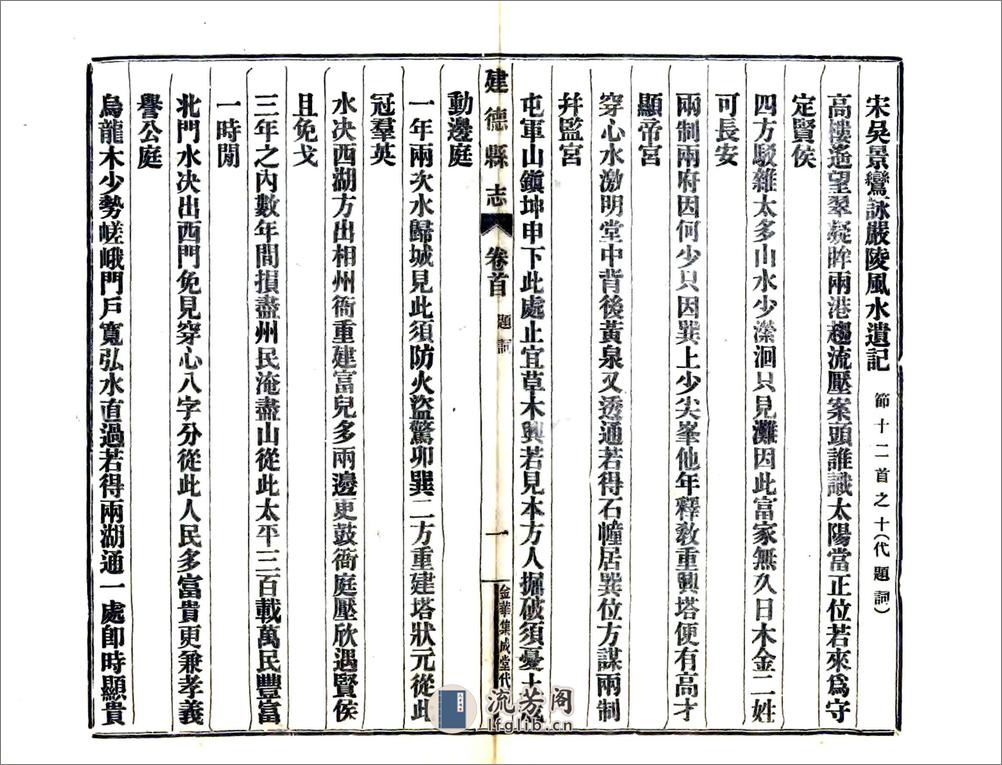 宋吳景鸞詠嚴陵風水遺記 節十二首之十(代題詞)
高樓遙望翠凝眸兩港趨流壓案頭誰識太陽當正位若來爲守
定賢侯
四方駁雜太多山水少瀠洄只見灘因此富家無久日木金二姓
可長安
兩制兩府因何少只因巽上少尖峯他年釋教重興塔便有高才
顯帝宮
穿心水激明堂中背後黃泉又透通若得石幢居巽位方謀兩制
幷監宮
屯軍山鎭坤申下此處止宜草木興若見本方人掘破須憂土
動邊庭
建德縣志 卷首 題詞 一 金華集成堂代
一年兩次水歸城見此須防火盜驚卯巽二方重建塔狀元從此
冠羣英
水决西湖方出相州衙重建富兒多兩邊更鼓衙庭壓欣遇賢侯
且免戈
三年之內數年間損盡州民淹盡山從此太平三百載萬民豐富
一時閒
北門水决出西門免見穿心八字分從此人民多富貴更兼孝義
譽公庭
烏龍木少勢嵯峨門戶寬弘水直過若得兩湖通一處卽時顯貴
流芳阁
lfglib.cn